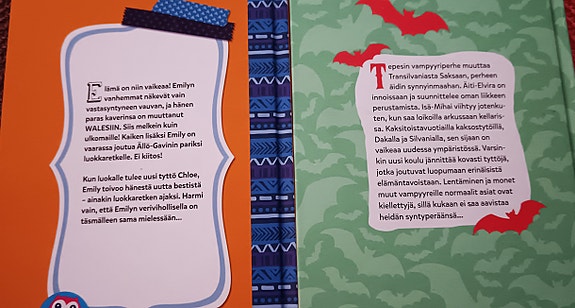 Elämä on niin vaikeaa! Emilyn
vanhemmat näkevät vain
vastasyntyneen vauvan, ja hänen
paras kaverinsa on muuttanut
WALESIIN. Siis melkein kuin
ulkomaille! Kaiken lisäksi Emily on
vaarassa joutua Ällö-Gavinin pariksi
luokkaretkelle. Ei kiitos!
Kun luokalle tulee uusi tyttö Chloe,
Emily toivoo hänestä uutta bestistä
– ainakin luokkaretken ajaksi. Harmi
vain, että Emilyn verivihollisella on
täsmälleen sama mielessään...
Tepesin vampyyriperhe muuttaa
Transilvaniasta Saksaan, perheen
äidin synnyinmaahan. Äiti-Elvira on
innoissaan ja suunnittelee oman liikkeen
perustamista. Isä-Mihai viihtyy jotenku-
ten, kun saa loikoilla arkussaan kellaris-
sa. Kaksitoistavuotiailla kaksostytöillä,
Dakalla ja Silvanialla, sen sijaan on
vaikeaa uudessa ympäristössä. Varsin-
kin uusi koulu jännittää kovasti tyttöjä,
jotka joutuvat luopumaan erinäisistä
elämäntavoistaan. Lentäminen ja monet
muut vampyyreille normaalit asiat ovat
kiellettyjä, sillä kukaan ei saa aavistaa
heidän syntyperäänsä...